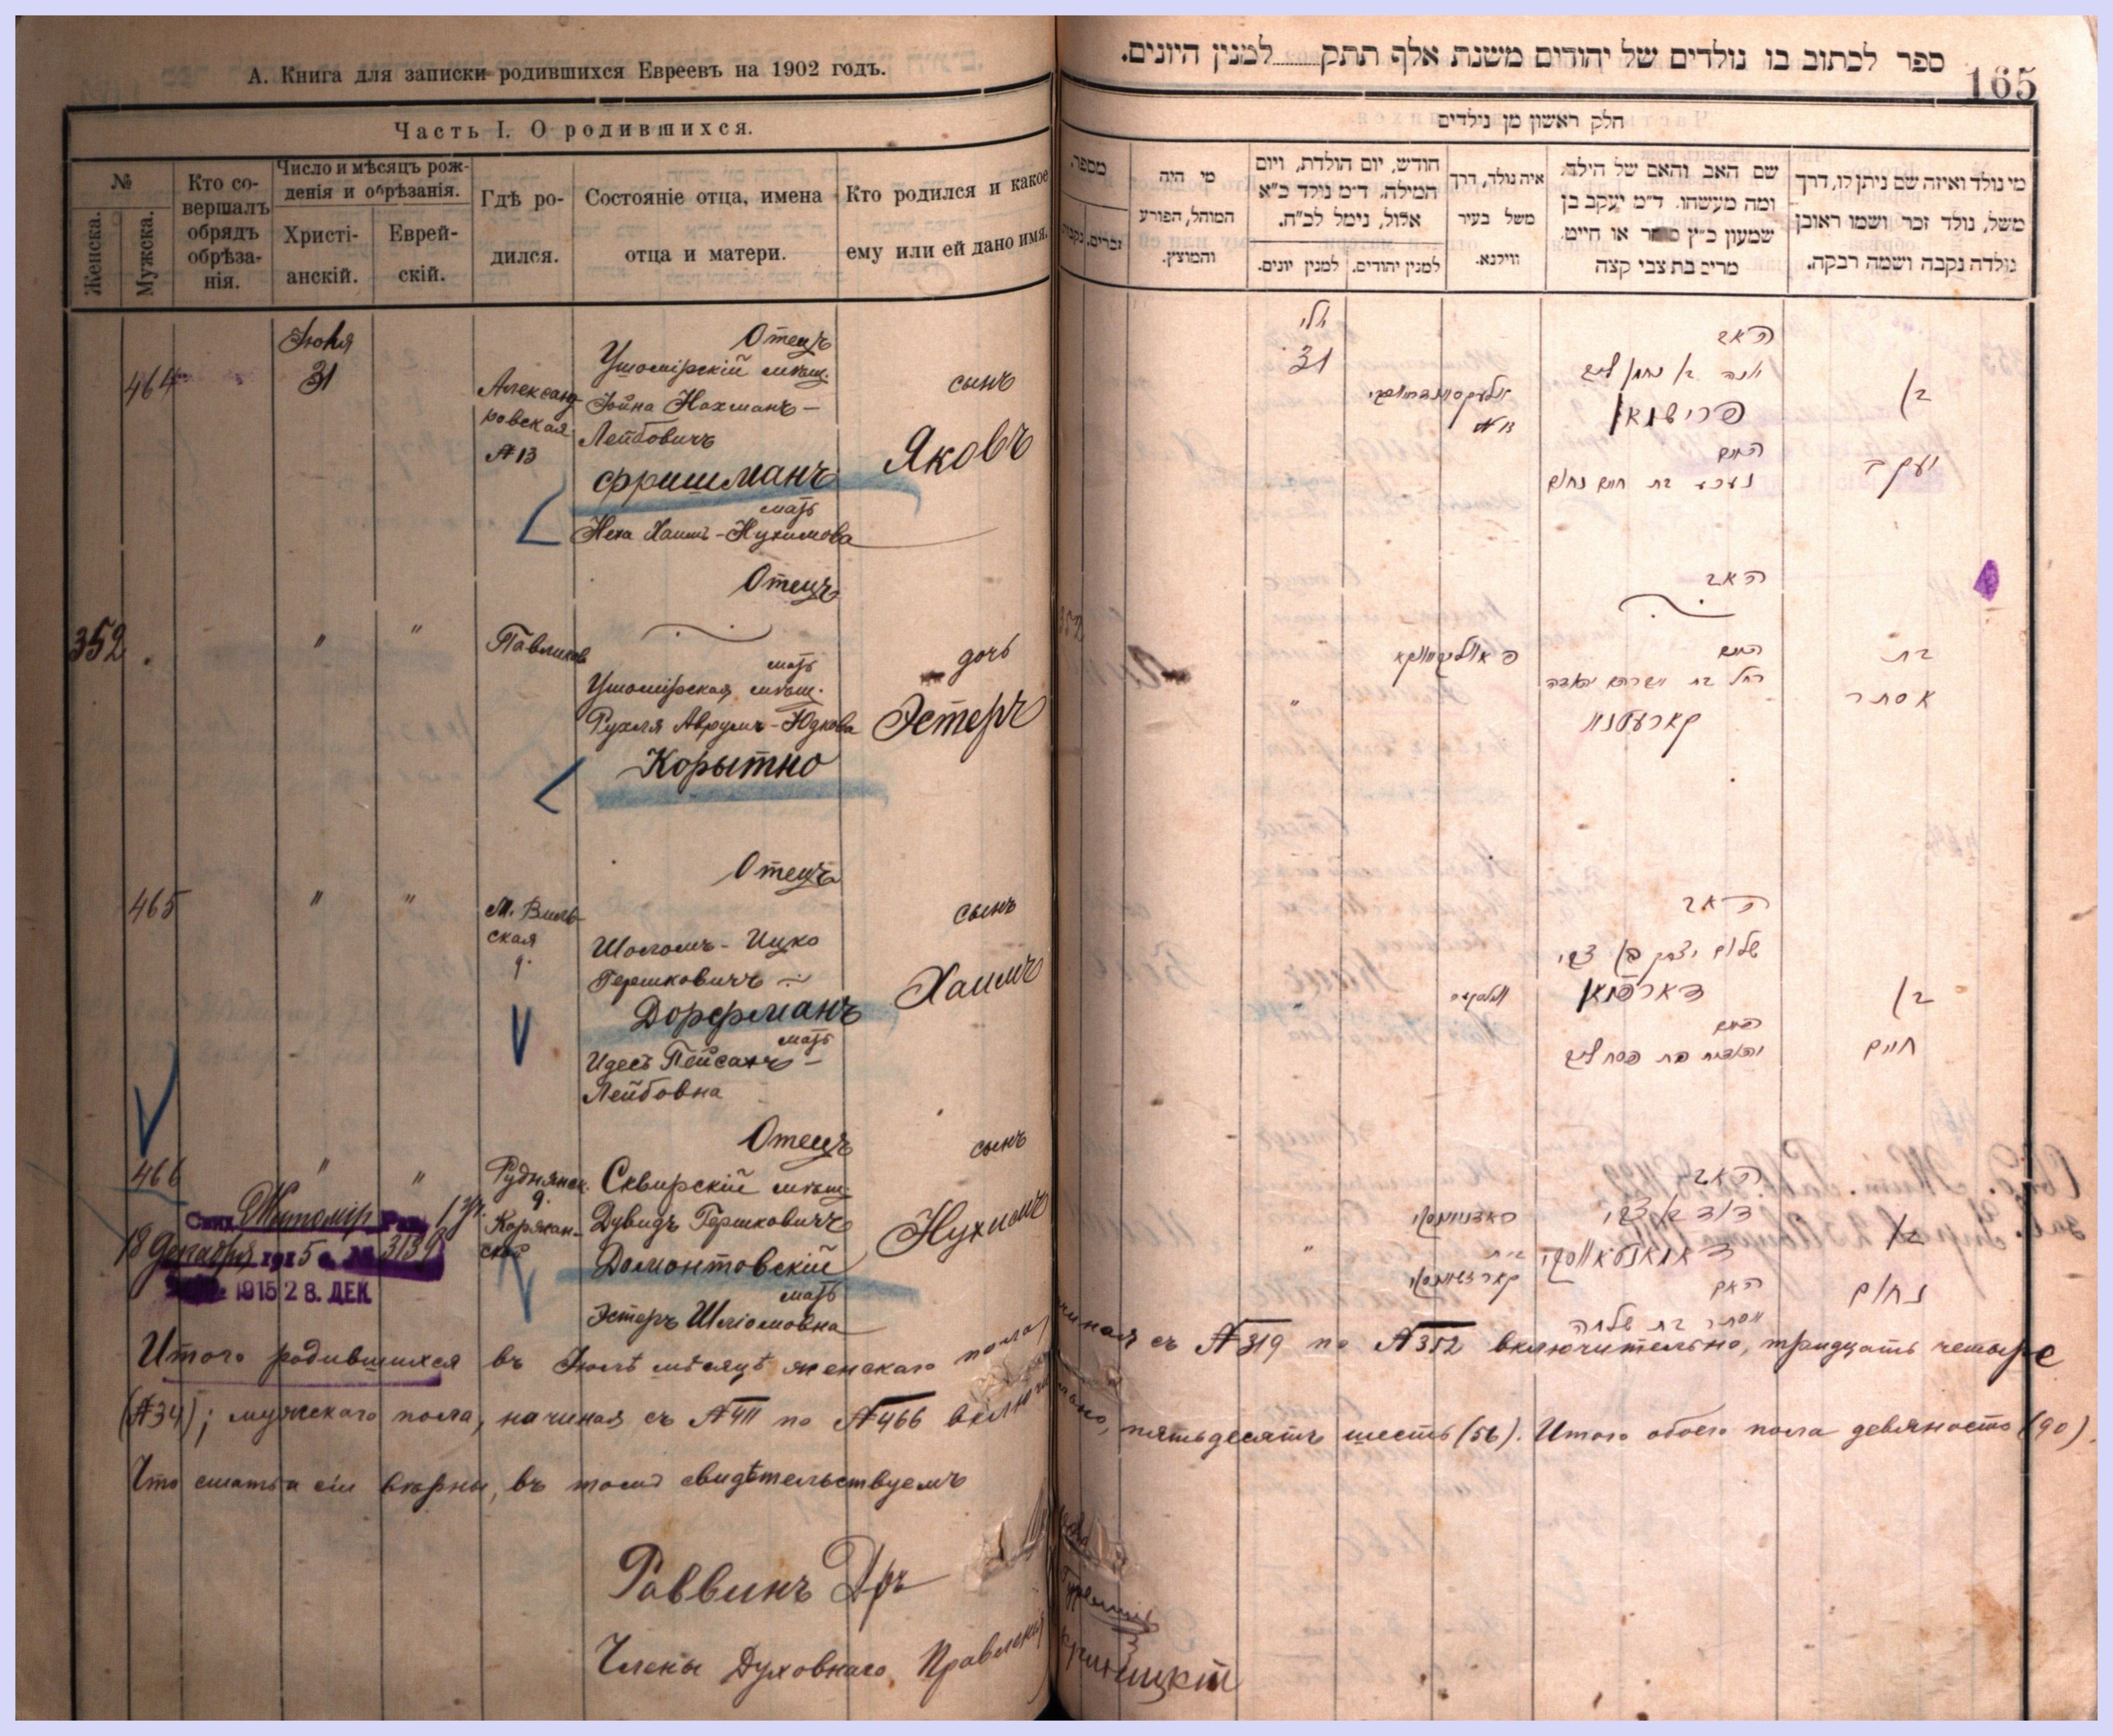 А. Книга для записки родившихся Евреевъ на 1902 годъ.
Часть I. О родившихся.
№
Женска.
Мужска.
Кто со-
вершалъ
обрядъ
обрѣза-
нія.
Число и мѣсяцъ рож-
денія и обрѣзанія.
Христі-
анскій.
Еврей-
скій.
Гдѣ ро-
дился.
Состояніе отца, имена
отца и матери.
Кто родился и какое
ему или ей дано имя.
464
Іюля
31
Александ-
ровская
№13
Отецъ
Ушомірскій мѣщ.
Іойна Нахманъ-
Лейбовичъ
Фришманъ
мать
Неха Хаимъ-Нухимова
сынъ
Яковъ
352
"
"
Павликов
Отецъ
мать
Ушомірская мѣщ.
Рухля Аврумъ-Юдкова
Корытно
дочь
Эстеръ
465
"
"
М. Виль-
ская
9.
Отецъ
Шоломъ-Ицко
Гершковичъ
Дорфманъ
мать
Идесъ Пейсахъ-
Лейбовна
сынъ
Хаимъ
466
"
"
Руднянск.
д.
Отецъ
Сквирскій мѣщ.
Дувидъ Гершковичъ
Домонтовскій
мать
Эстеръ Шліомовна
сынъ
Нухимъ
Житомір
18 декабря 1915 г. № 3139
1915 28. ДЕК.
Итого родившихся въ Іюлѣ мѣсяцѣ женскаго пола,
(№34); мужескаго пола, начиная съ №411 по №466 включи
Что статьи сіи вѣрны, въ томъ свидѣтельствуемъ
Раввинъ Дръ
Члены Духовнаго Правленія
ספר לכתוב בו נולדים של יהודים משנת אלף תתק למנין היונים.
165
חלק ראשון מן נילדים
מספר.
זכרים. נקבות
מי היה
המוהל, הפורע
והמוצץ.
חודש, יום הולדת, ויום
המילה. ד״מ נולד כ״א
אלול, נימל לכ״ח.
למנין יונים.
למנין יהודים.
איה נולד, דרך
משל בעיר
ווילנא.
שם האב והאם של הילד,
ומה מעשהו. ד״מ יעקב בן
שמעון כ״ץ סוחר או חייט.
מרים בת צבי קצה
מי נולד ואיזה שם ניתן לו, דרך
משל, נולד זכר ושמו ראובן
נולדה נקבה ושמה רבקה.
יולי
31
№ 13
האב
יונה בן נחמן ליב
פרישמאן
האם
נעכע בת חיים נחום
בן
יעקב
"
האב
האם
רחל בת אברהם יהודה
קאריטנא
בת
אסתר
האב
שלום יצחק בן צבי
דארפמאן
האם
יהודית בת פסח ליב
בן
חיים
"
האב
דוד בן צבי
האם
אסתר בת שלמה
בן
נחום
чиная съ №319 по №352 включительно, тридцать четыре
тельно, пятьдесятъ шесть (56). Итого обоего пола девяносто (90).